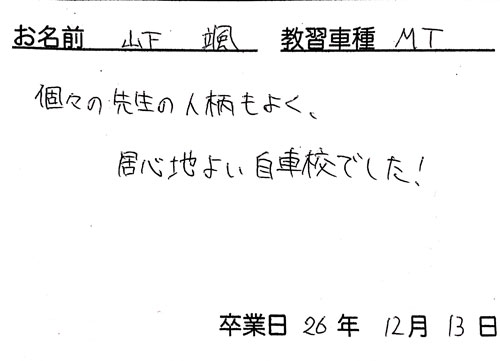 お名前 山下 颯 教習車種 MT
個々の先生の人柄もよく、
居心地よい自車校でした!
卒業日 26年 12月 13日